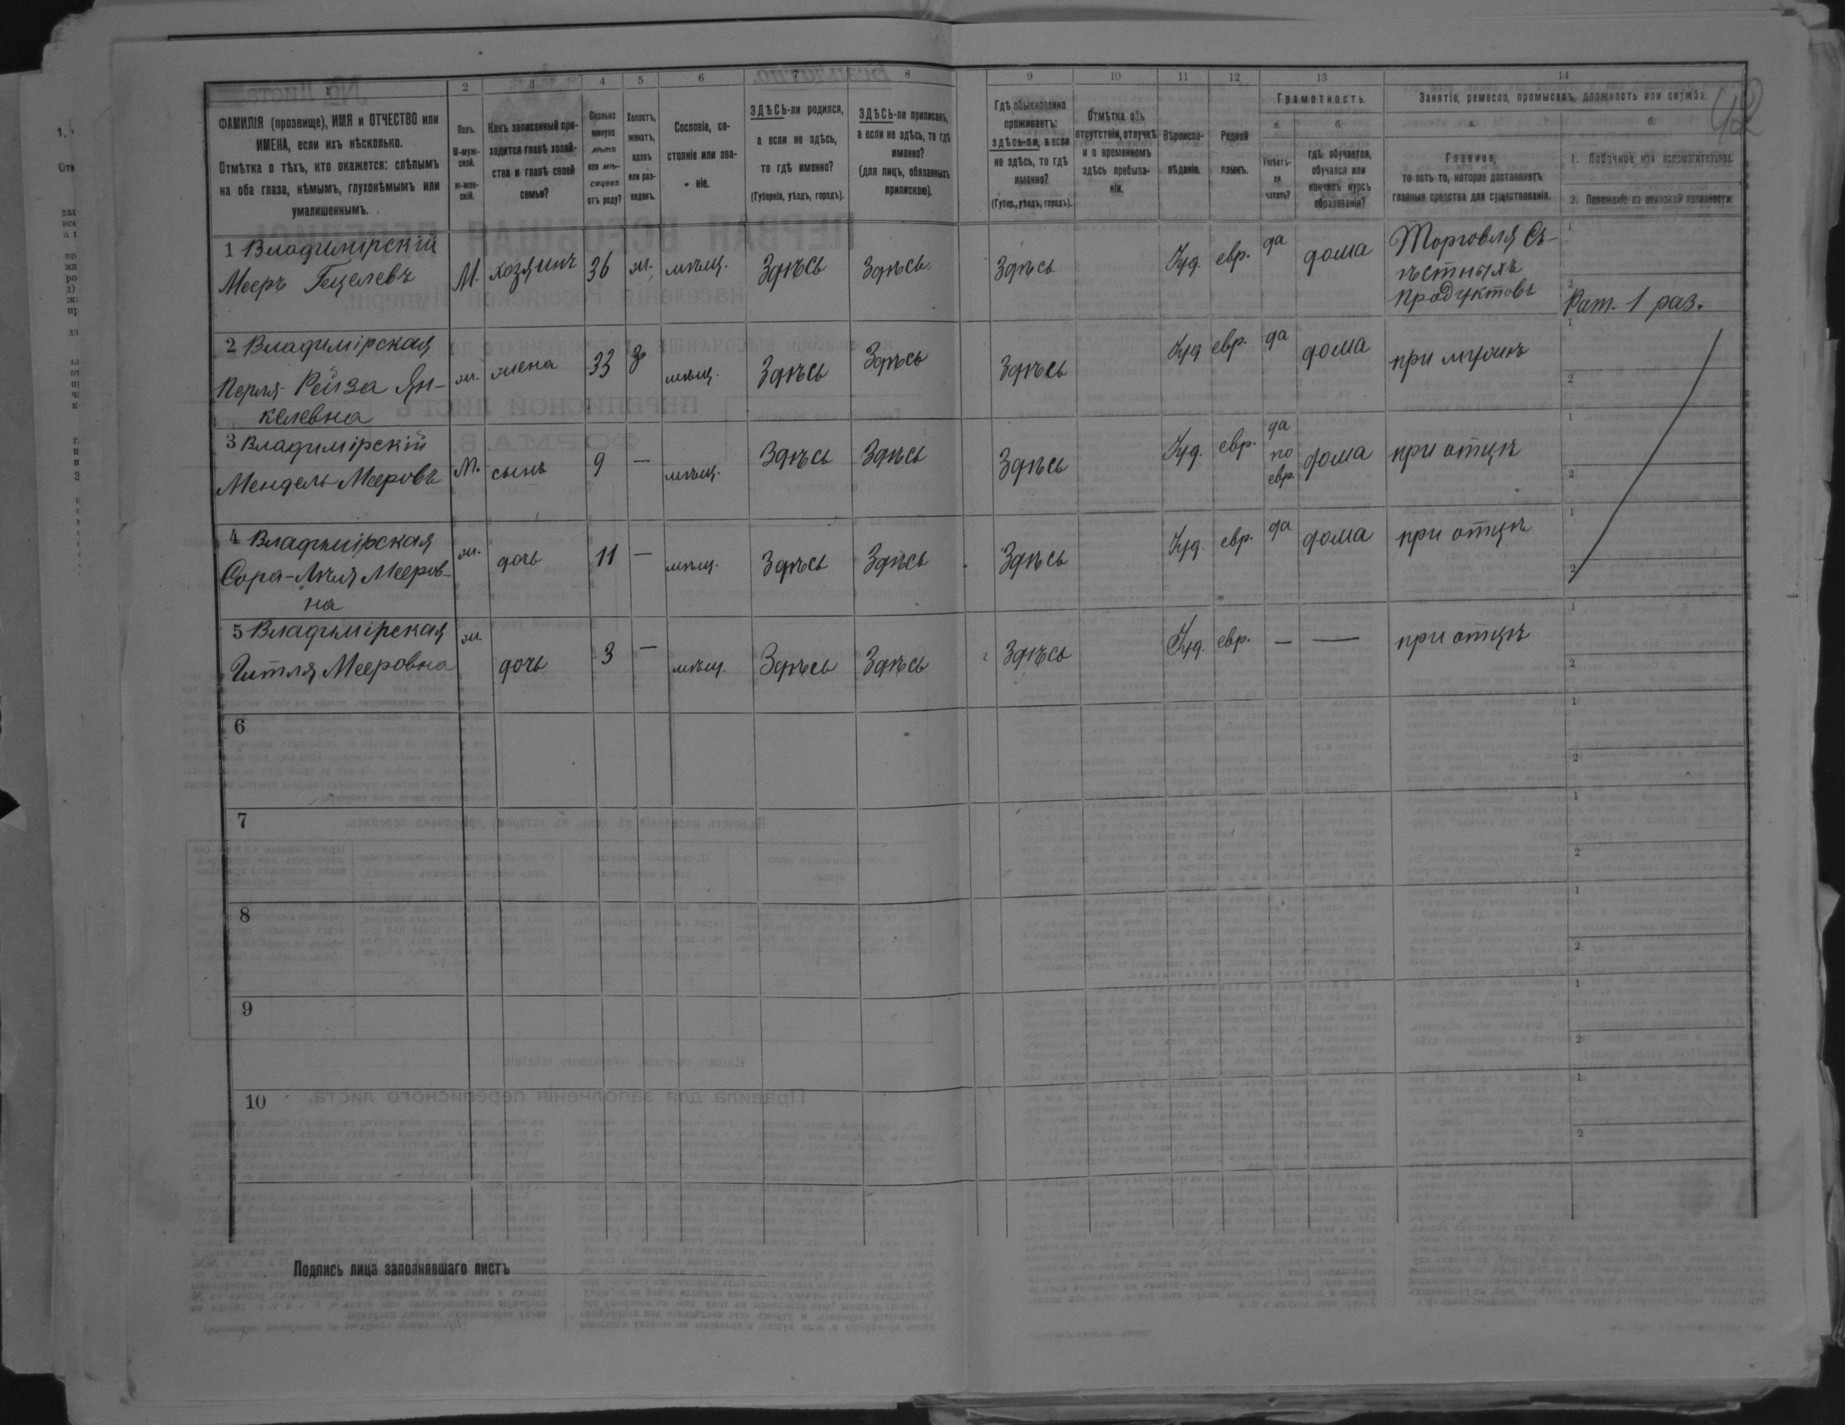 1 2 3 4 5 6 7 8 9 10 11 12 13 14
42
ФАМИЛІЯ (прозвище), ИМЯ и ОТЧЕСТВО или
ИМЕНА, если ихъ нѣсколько.
Отмѣтка о тѣхъ, кто окажется: слѣпымъ
на оба глаза, нѣмымъ, глухонѣмымъ или
умалишеннымъ.
Полъ.
М-муж-
ской.
ж-жен-
скій.
Какъ записанный при-
ходится главѣ хозяй-
ства и главѣ своей
семьи?
Сколько
минуло
лѣтъ
или мѣ-
сяцевъ
отъ роду?
Холостъ,
женатъ,
вдовъ
или раз-
веденъ.
Сословіе, со-
стояніе или зва-
ніе.
ЗДѢСЬ-ли родился,
а если не здѣсь,
то гдѣ именно?
(Губернія, уѣздъ, городъ).
ЗДѢСЬ-ли приписанъ,
а если не здѣсь, то гдѣ
именно?
(для лицъ, обязанныхъ
припискою).
Гдѣ обыкновенно
проживаетъ:
здѣсь-ли, а если
не здѣсь, то гдѣ
именно?
(Губер., уѣздъ, городъ).
Отмѣтка объ
отсутствіи, отлучкѣ
и о временномъ
здѣсь пребыва-
ніи.
Вѣроиспо-
вѣданіе.
Родной
языкъ.
Грамотность.
а. б.
Умѣетъ-
ли
читать?
гдѣ обучается,
обучался или
кончилъ курсъ
образованія?
Занятіе, ремесло, промыселъ, должность или служба.
а. б.
Главное,
то есть то, которое доставляетъ
главныя средства для существованія.
1. Побочное или вспомогательное.
2. Положеніе по воинской повинности.
1 Владимірскій
Мееръ Гецелевъ
М. хозяинъ 36 ж. мѣщ. Здѣсь Здѣсь Здѣсь Іуд. евр. да дома
Торговля Съ-
ѣстныхъ
продуктовъ
1
2
Рат. 1 раз.
2 Владимірская
Перля-Рейза Ян-
келевна
ж. жена 33 З мѣщ. Здѣсь Здѣсь Здѣсь Іуд евр. да дома при мужѣ
1
2
3 Владимірскій
Мендель Мееровъ
М. сынъ 9 — мѣщ. Здѣсь Здѣсь Здѣсь Іуд. евр.
да
по
евр.
дома при отцѣ
1
2
4 Владимірская
Сора-Лѣя Мееров-
на
ж. дочь 11 — мѣщ. Здѣсь Здѣсь Здѣсь Іуд. евр. да дома при отцѣ
1
2
5 Владимірская
Гитля Мееровна
ж дочь 3 — мѣщ. Здѣсь Здѣсь Здѣсь Іуд. евр. — — при отцѣ
1
2
6
1
2
7
1
2
8
1
2
9
1
2
10
1
2
Подпись лица заполнявшаго листъ